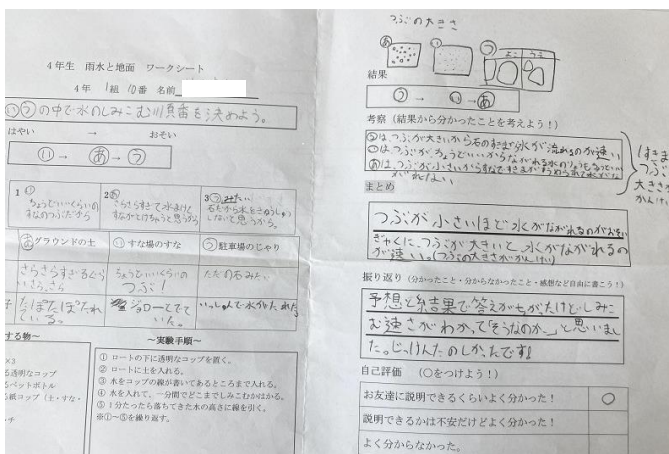 4年生 雨水と地面 ワークシート
4年 1組 10番 名前
あいうの中で水のしみこむ順番を決めよう。
はやい → おそい
い→ あ→ う
1い
ちょうどいいくらいの
すなのつぶだから
2あ
さらさらすぎて水まけて
すながとけちゃうと思うから
3う みたい
石だから水をきゅうしゅう
しないと思うから。
あグラウンドの土
い砂場のすな
う駐車場のじゃり
さらさらすぎるぐら
いさらさら
ちょうどいいくらいの
つぶ!
ただの石みたい
子
たぽたぽたれ
ている。
ジョローてでて
いた。
いっしゅんで水がたれた
する物~
×3
る透明なコップ
るペットボトル
る紙コップ(土・すな・
・チ
~実験手順~
① ロートの下に透明なコップを置く。
② ロートに土を入れる。
③ 水をコップの線が書いてあるところまで入れる。
④ 水を入れて、一分間でどこまでしみこむかはかる。
⑤ 1分たったら落ちてきた水の高さに線を引く。
※①~⑤を繰り返す。
つぶの大きさ
あ い う
よこ うえ
結果
う → い→あ
考察(結果から分かったことを考えよう!)
うは、つぶが大きいから石のすきまから水が流れるのが速い
いは、つぶがちょうどいいからながれる水のりょうも
あは、つぶが小さいから
すきま
つぶの
大きさの
かんけい
まとめ
つぶが小さいほど水がながれるのがおそい
ぎゃくに、つぶが大きいと水がながれるの
が速い。(つぶの大きさがかんけい)
振り返り(分かったこと・分からなかったこと・感想など自由に書こう!)
予想と結果で答えがちがったけどしみこ
む速さがわかって「そうなのかー」と思いまし
た。じっけんたのしかったです!
自己評価 (○をつけよう!)
お友達に説明できるくらいよく分かった! ○
説明できるかは不安だけどよく分かった!
よく分からなかった。